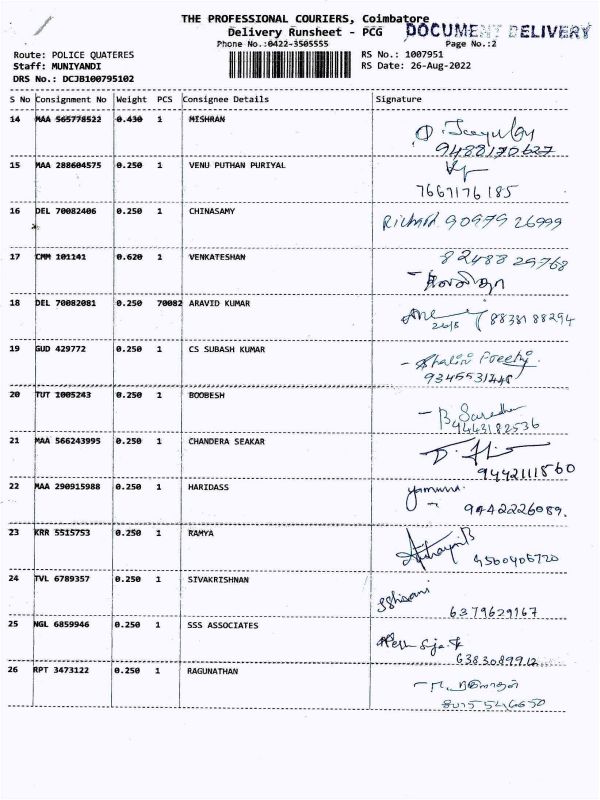 THE PROFESSIONAL COURIERS, Coimbatore
Delivery Runsheet - PCG
DOCUMENT DELIVERY
Phone No.:0422-3505555
Page No.:2
Route: POLICE QUATERES
RS No.: 1007951
Staff: MUNIYANDI
RS Date: 26-Aug-2022
DRS No.: DCJB100795102
S No Consignment No Weight PCS Consignee Details Signature
14 MAA 565778522 0.430 1 MISHRAN
9488170627
15 MAA 288604575 0.250 1 VENU PUTHAN PURIYAL
7667176185
16 DEL 70082406 0.250 1 CHINASAMY
Richard 90979 26999
17 CMM 101141 0.620 1 VENKATESHAN
82488 29768
18 DEL 70082081 0.250 70082 ARAVID KUMAR
8838188294
19 GUD 429772 0.250 1 CS SUBASH KUMAR
20 TUT 1005243 0.250 1 BOOBESH
9443182536
21 MAA 566243995 0.250 1 CHANDERA SEAKAR
9442111560
22 MAA 290915988 0.250 1 HARIDASS
Yamuna
9442226089.
23 KRR 5515753 0.250 1 RAMYA
24 TVL 6789357 0.250 1 SIVAKRISHNAN
6379629167
25 NGL 6859946 0.250 1 SSS ASSOCIATES
6383089912
26 RPT 3473122 0.250 1 RAGUNATHAN